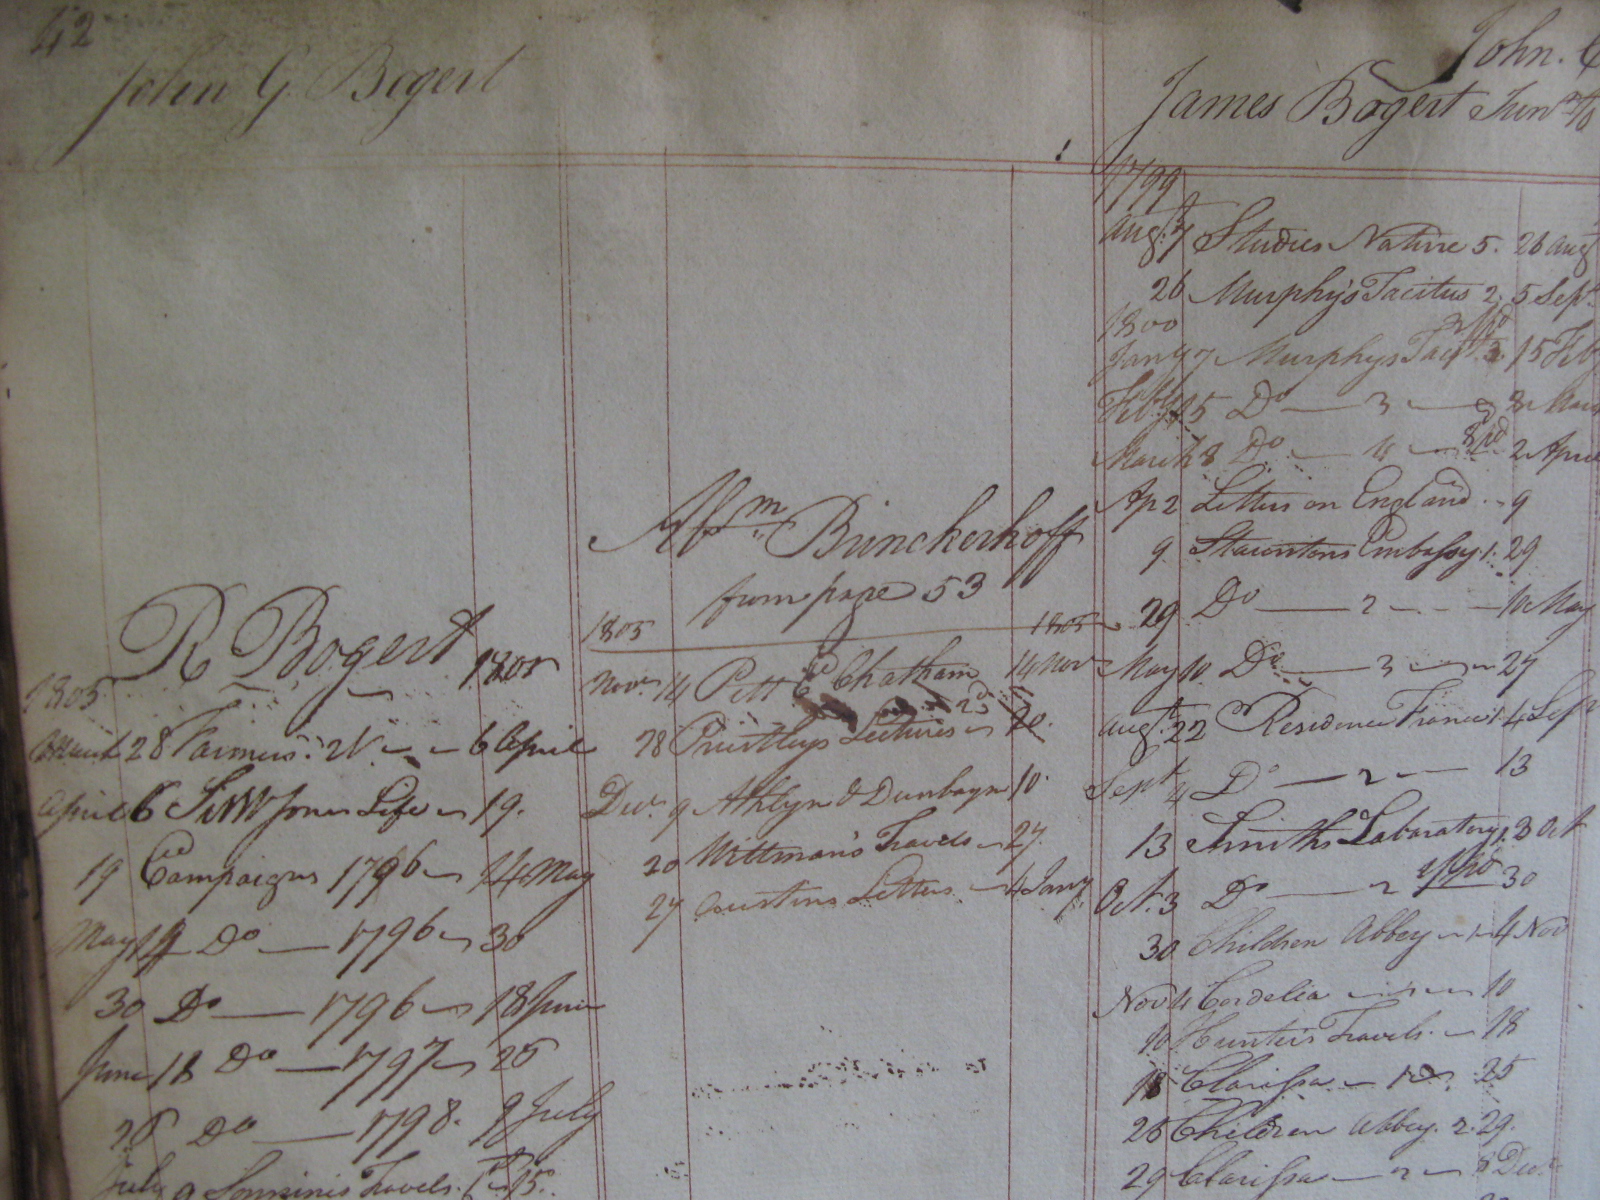 42
John G. Bogert
R Bogert
1805 1805
March 28 Farmers. 2V. 6 April
April 6 Sir W Jones Life 19.
19 Campaigns 1796 14 May
May 14 Do 1796 30
30 Do 1796 18 June
June 18 Do 1797 25
25 Do 1798. 9 July
July 9 Sonninis Travels. 15.
Abm. Brinckerhoff
from page 53
1805 1805
Novr. 14 Pitt E Chatham 14 Novr
28 Priestleys Lectures
Decr. 9 Athlyn & Dunbayn 10.
20 Wittman's Travels 27.
27 Austins Letters 4 Jany
John.
James Bogert Junr
1799
Augt. 7 Studies Nature 5. 26 Augt
26 Murphy's Tacitus 2. 5 Sept.
1800
Jany 7 Murphys 15 Feby
Feby 15 Do 3 8 Mar
March 8 Do 4 2 April
Ap 2 Letters on England 9
9 Stauntons Embassy 1. 29
29 Do 2 10 May
May 10 Do 3 27
Augt. 22 Residence France 1. 4 Sept
Sept 4 Do 2 13
13 Smiths Laboratory 1. 3 Oct
Oct. 3 Do 2 30
30 Children Abbey 1 4 Nov
Nov 4 Cordelia 10
10 Hunters Travels. 18
18 Clarissa 1 25
25 Children Abbey. 2. 29.
29 Clarissa 2 8 Decr.